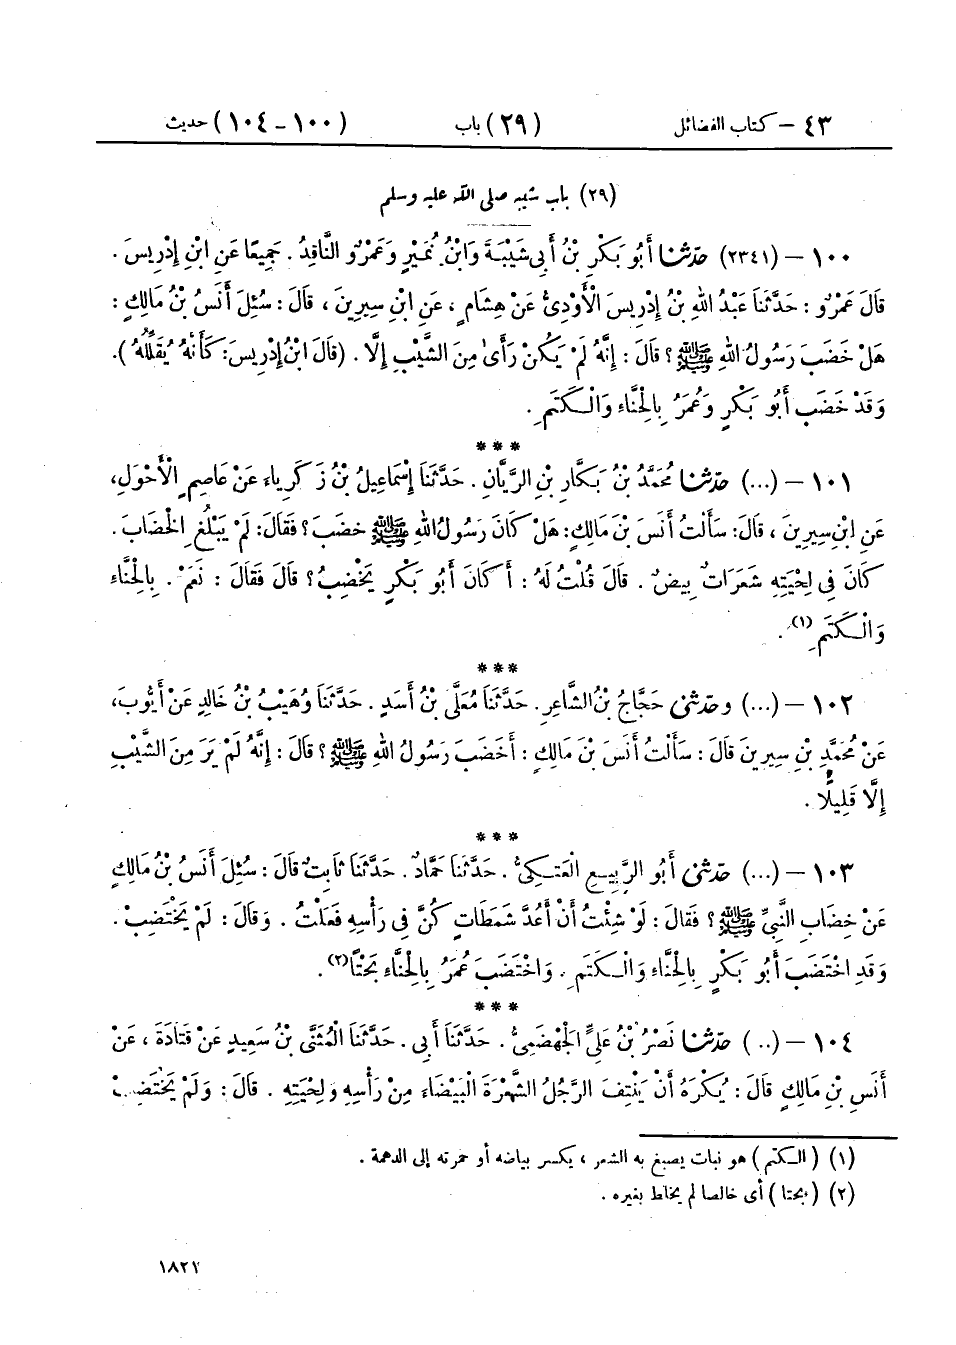 ٤٣ – كتاب الفضائل (٢٩) باب (١٠٠ – ١٠٤) حديث
(٢٩) باب شيبه صلى الله عليه وسلم
١٠٠ – (٢٣٤١) حدّثنا أَبُو بَكْرِ بْنُ أَبِي شَيْبَةَ وَابْنُ نُمَيْرٍ وَعَمْرٌو النَّاقِدُ . جَمِيعًا عَنِ ابْنِ إِدْرِيسَ .
قَالَ عَمْرٌو : حَدَّثَنَا عَبْدُ اللهِ بْنُ إِدْرِيسَ الْأَوْدِيُّ عَنْ هِشَامٍ ، عَنِ ابْنِ سِيرِينَ ، قَالَ : سُئِلَ أَنَسُ بْنُ مَالِكٍ :
هَلْ خَضَبَ رَسُولُ اللهِ ﷺ ؟ قَالَ : إِنَّهُ لَمْ يَكُنْ رَأَىٰ مِنَ الشَّيْبِ إِلَّا . (قَالَ ابْنُ إِدْرِيسَ: كَأَنَّهُ يُقَلِّلُهُ ).
وَقَدْ خَضَبَ أَبُو بَكْرٍ وَعُمَرُ بِالْحِنَّاءِ وَالْكَتَمِ .
***
١٠١ – (...) حدّثنا مُحَمَّدُ بْنُ بَكَّارِ بْنِ الرَّيَّانِ . حَدَّثَنَا إِسْمَاعِيلُ بْنُ زَكَرِيَاءَ عَنْ عَاصِمٍ الْأَحْوَلِ،
عَنِ ابْنِ سِيرِينَ ، قَالَ: سَأَلْتُ أَنَسَ بْنَ مَالِكٍ: هَلْ كَانَ رَسُولُ اللهِ ﷺ خضَبَ ؟ فَقَالَ: لَمْ يَبْلُغِ الْخِضَابَ .
كَانَ فِي لِحْيَتِهِ شَعَرَاتٌ بِيضٌ . قَالَ قُلْتُ لَهُ : أَكَانَ أَبُو بَكْرٍ يَخْضِبُ؟ قَالَ فَقَالَ : نَعَمْ . بِالْحِنَّاءِ
وَالْكَتَمِ (١) .
***
١٠٢ – (...) وحدّثني حَجَّاجُ بْنُ الشَّاعِرِ. حَدَّثَنَا مُعَلَّى بْنُ أَسَدٍ . حَدَّثَنَا وُهَيْبُ بْنُ خَالِدٍ عَنْ أَيُّوبَ،
عَنْ مُحَمَّدِ بْنِ سِيرِينَ قَالَ : سَأَلْتُ أَنَسَ بْنَ مَالِكٍ : أَخَضَبَ رَسُولُ اللهِ ﷺ ؟ قَالَ : إِنَّهُ لَمْ يَرَ مِنَ الشَّيْبِ
إِلَّا قَلِيلًا .
***
١٠٣ – (...) حدّثني أَبُو الرَّبِيعِ الْعَتَكِيُّ . حَدَّثَنَا حَمَّادٌ . حَدَّثَنَا ثَابِتٌ قَالَ : سُئِلَ أَنَسُ بْنُ مَالِكٍ
عَنْ خِضَابِ النَّبِيِّ ﷺ ؟ فَقَالَ : لَوْ شِئْتُ أَنْ أَعُدَّ شَمَطَاتٍ كُنَّ فِي رَأْسِهِ فَعَلْتُ . وَقَالَ : لَمْ يَخْتَضِبْ .
وَقَدِ اخْتَضَبَ أَبُو بَكْرٍ بِالْحِنَّاءِ وَالْكَتَمِ . وَاخْتَضَبَ عُمَرُ بِالْحِنَّاءِ بَحْتًا (٢) .
***
١٠٤ – (..) حدّثنا نَصْرُ بْنُ عَلِيٍّ الْجَهْضَمِيُّ . حَدَّثَنَا أَبِي . حَدَّثَنَا الْمُثَنَّى بْنُ سَعِيدٍ عَنْ قَتَادَةَ ، عَنْ
أَنَسِ بْنِ مَالِكٍ قَالَ : يُكْرَهُ أَنْ يَنْتِفَ الرَّجُلُ الشَّعْرَةَ الْبَيْضَاءَ مِنْ رَأْسِهِ وَلِحْيَتِهِ . قَالَ : وَلَمْ يَخْتَضِبْ
(١) (الكتم) هو نبات يصبغ به الشعر ، يكسر بياضه أو حمرته إلى الدهمة .
(٢) (بحتا) أى خالصا لم يخلط بغيره .
١٨٢١